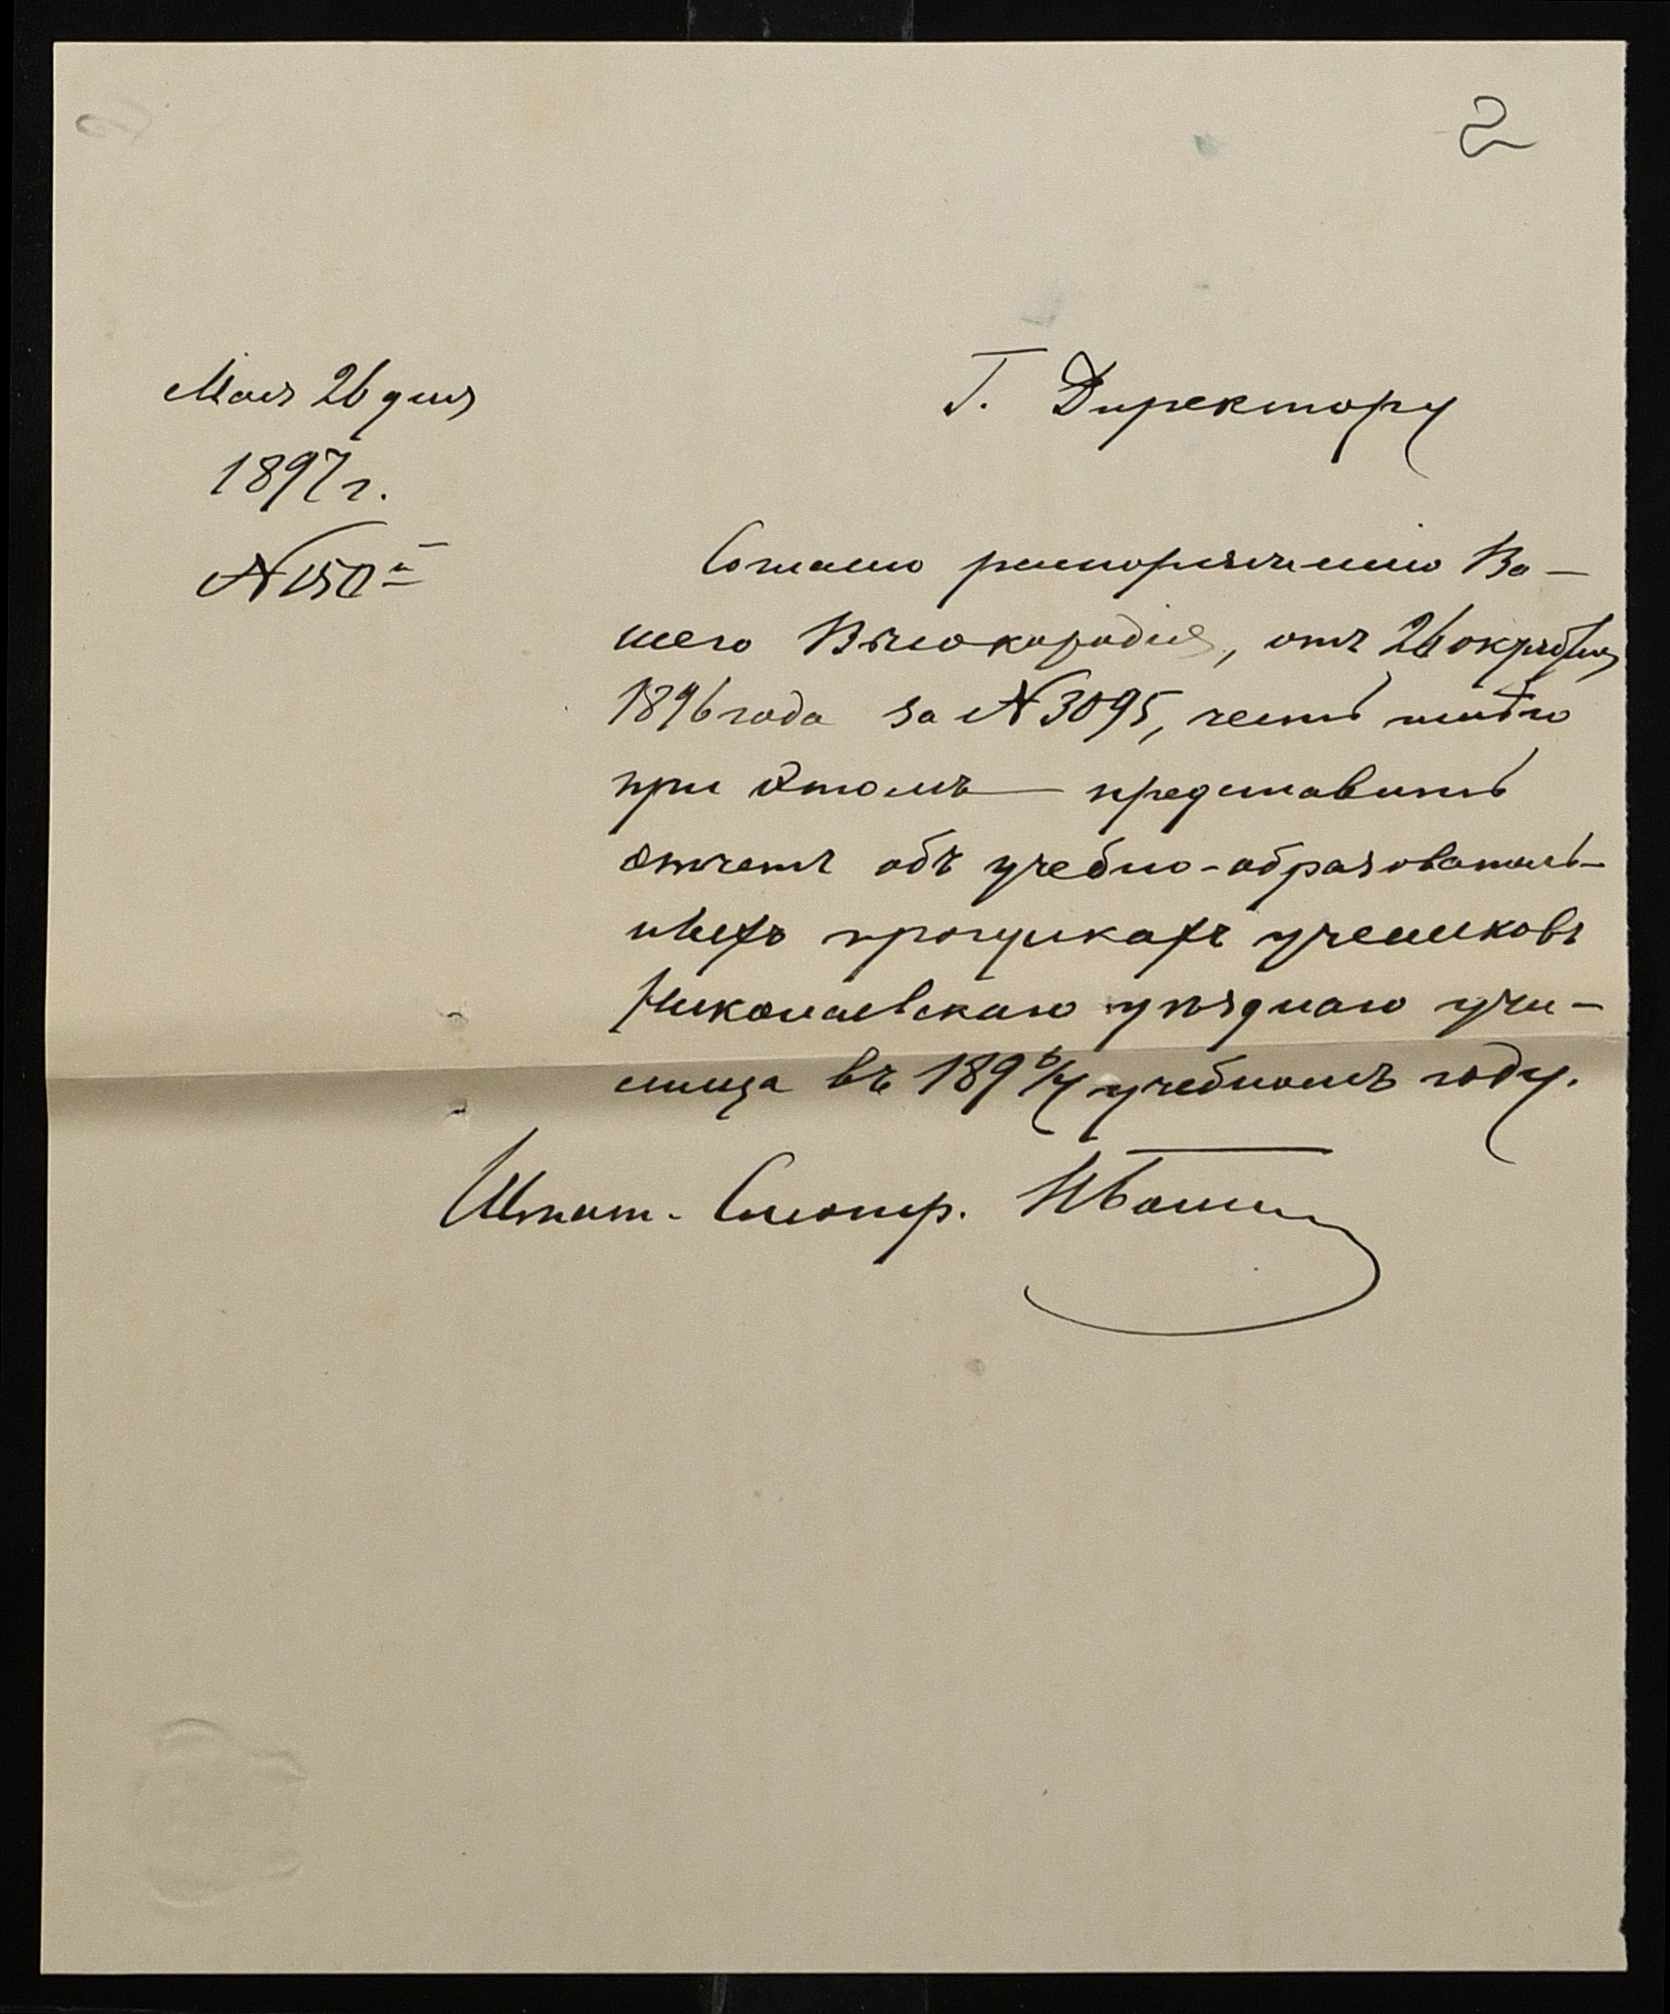 2
Мая 26 дня
1897 г.
№ 150
Г. Директору
Согласно распоряженію Ва-
шего Высокородія, отъ 26 октября
1896 года за № 3095, честь имѣю
при этомъ представить
отчетъ объ учебно-образователь-
ныхъ прогулкахъ учениковъ
Николаевскаго уѣзднаго учи-
лища въ 1896/7 учебномъ году.
Штат. Смотр.